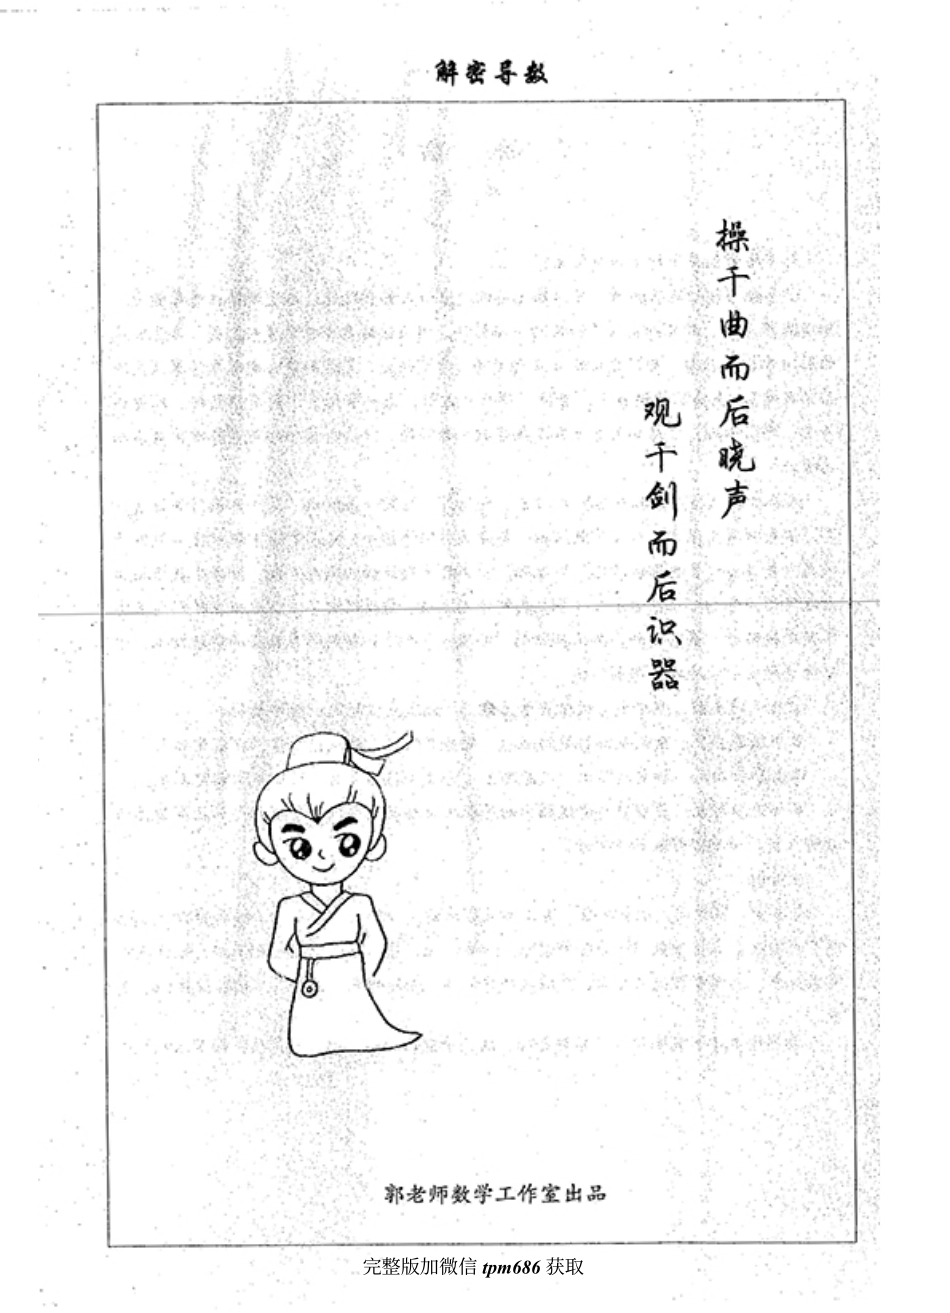 解密导数
操千曲而后晓声
观千剑而后识器
郭老师数学工作室出品
完整版加微信 tpm686 获取